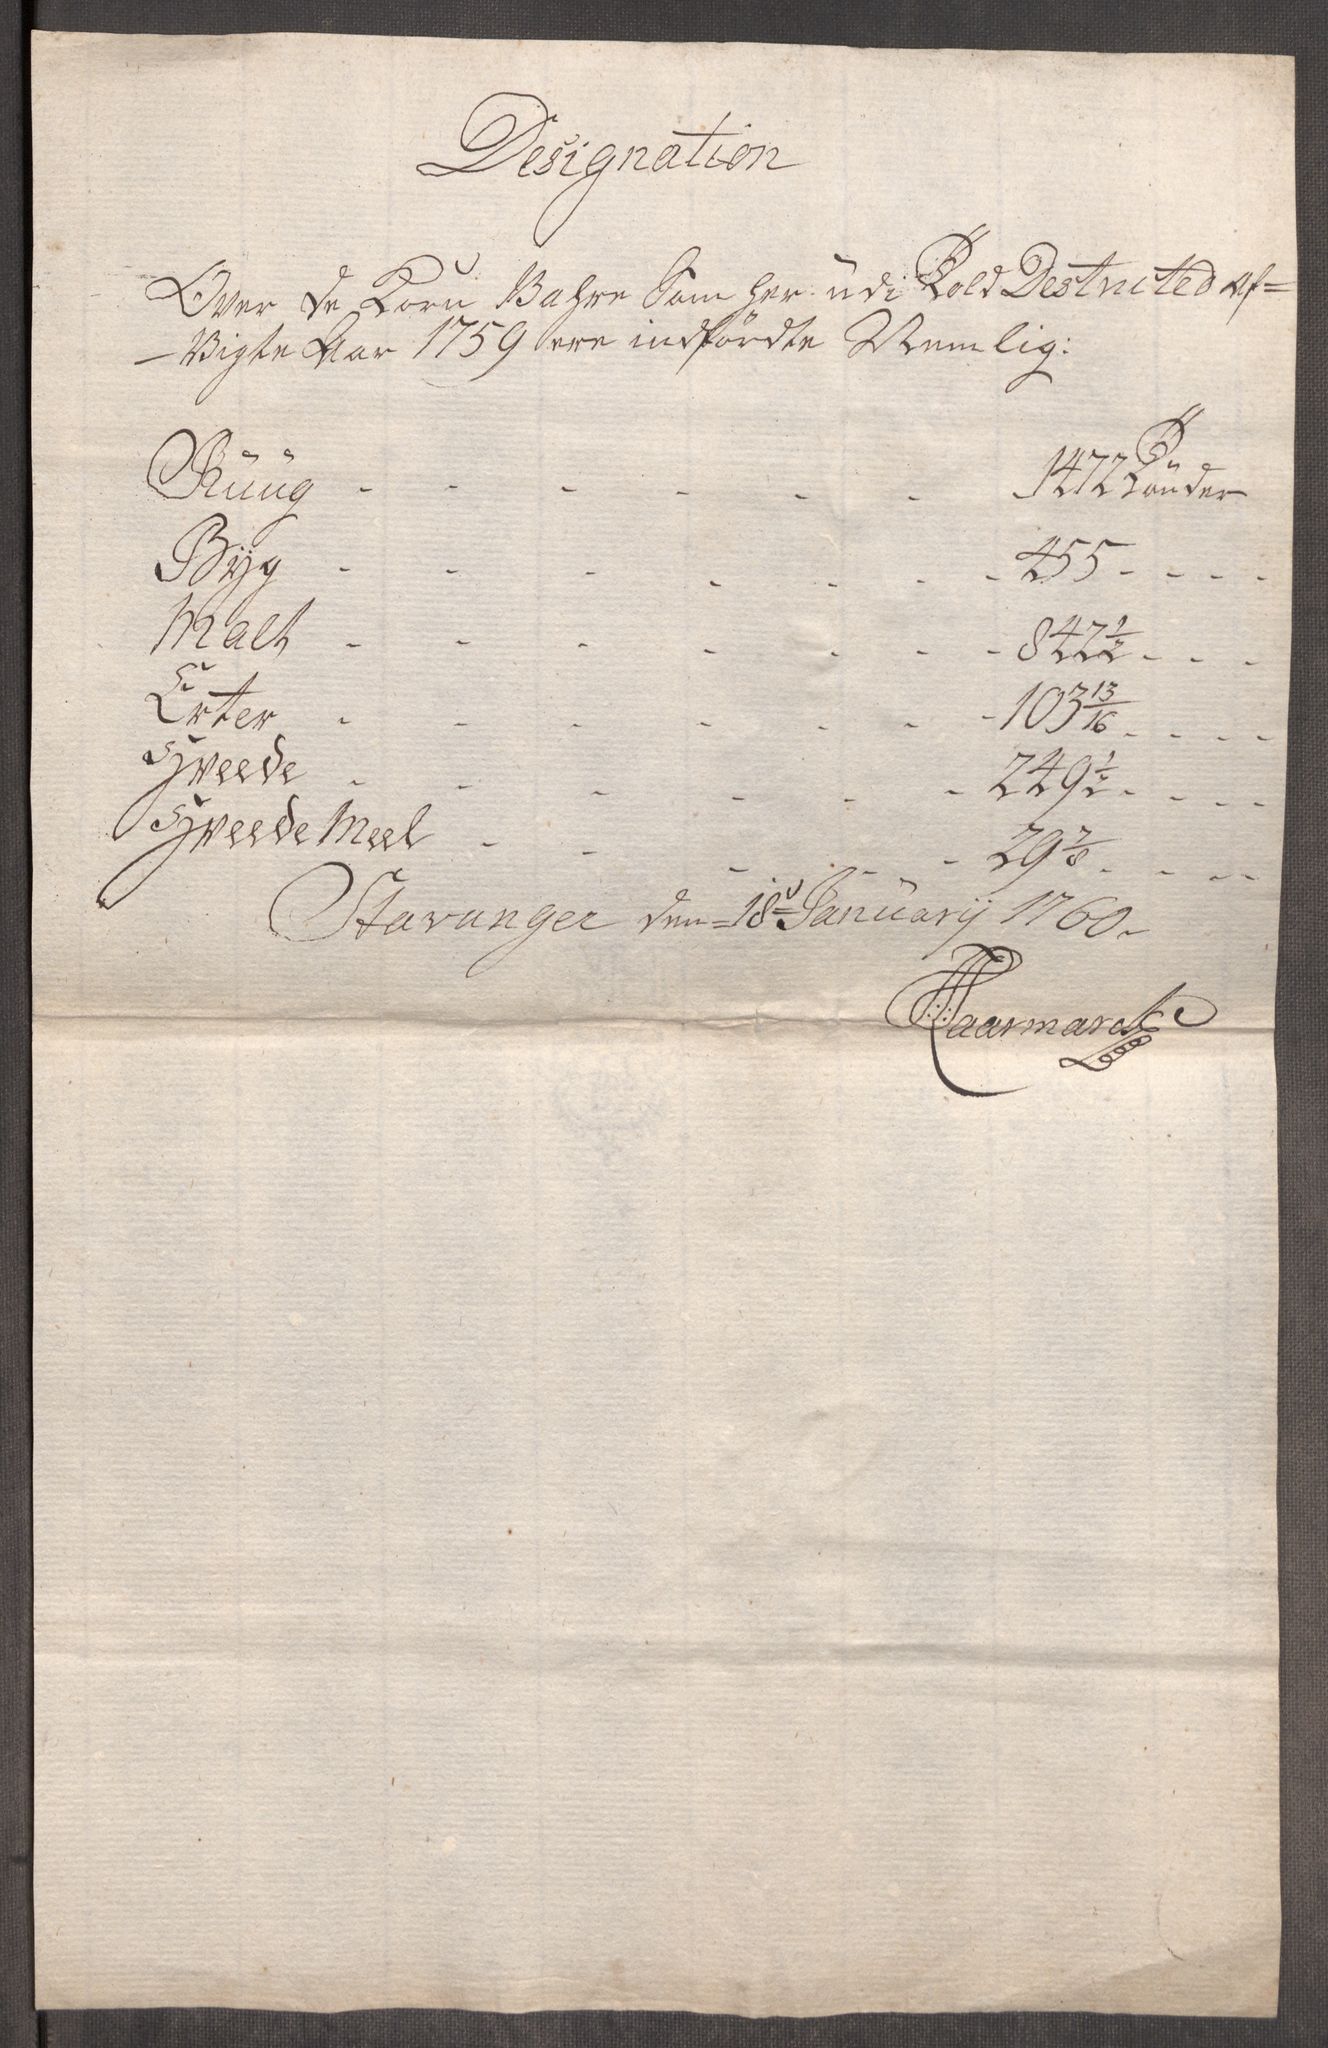 Designation
Over de Korn Vahre Som her udi Told Destricted af=
Vigte Aar 1759 ere indførdte Nemlig:
Rüüg - - - - - - 1472 Tønder
Bÿg - - - - - - - 455 - - - -
Malt - - - - - - - 842½ - - -
Erter - - - - - - - 103 13/16 - - - -
Hveede - - - - - - 249½ - - - -
Hveede Meel - - - - - 29⅞ - - - -
Stavanger den 18de Januarÿ 1760.